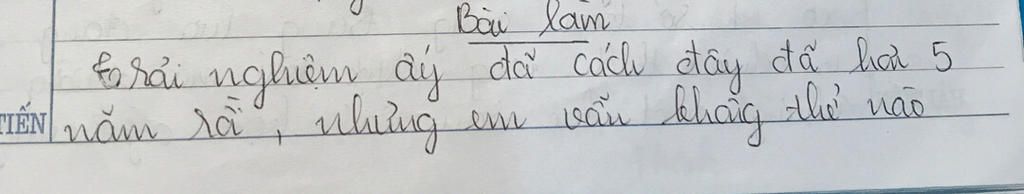 Bài làm
Trải nghiệm ấy đã cách đây đã hơn 5
TIẾN
năm rồi, nhưng em vẫn không thể nào